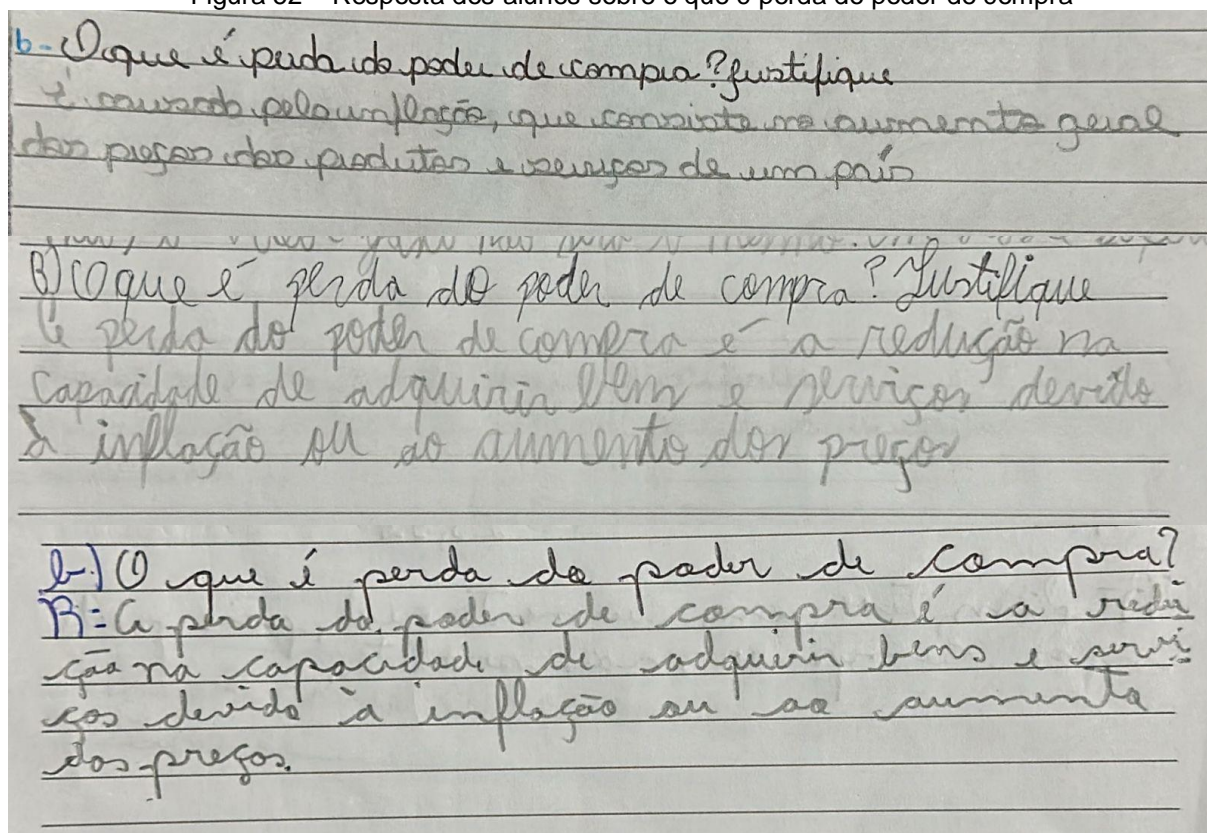 Figura 32 – Resposta dos alunos sobre o que é perda do poder de compra
b- O que é perda do poder de compra? Justifique
é causada pela inflação, que consiste no aumento geral
dos preços dos produtos e serviços de um país
B) O que é perda do poder de compra? Justifique
A perda do poder de compra é a redução na
capacidade de adquirir bem e serviços devido
à inflação ou ao aumento dos preços
b-) O que é perda do poder de compra?
R= A perda do poder de compra é a redu
ção na capacidade de adquirir bens e servi
ços devido à inflação ou ao aumento
dos preços.